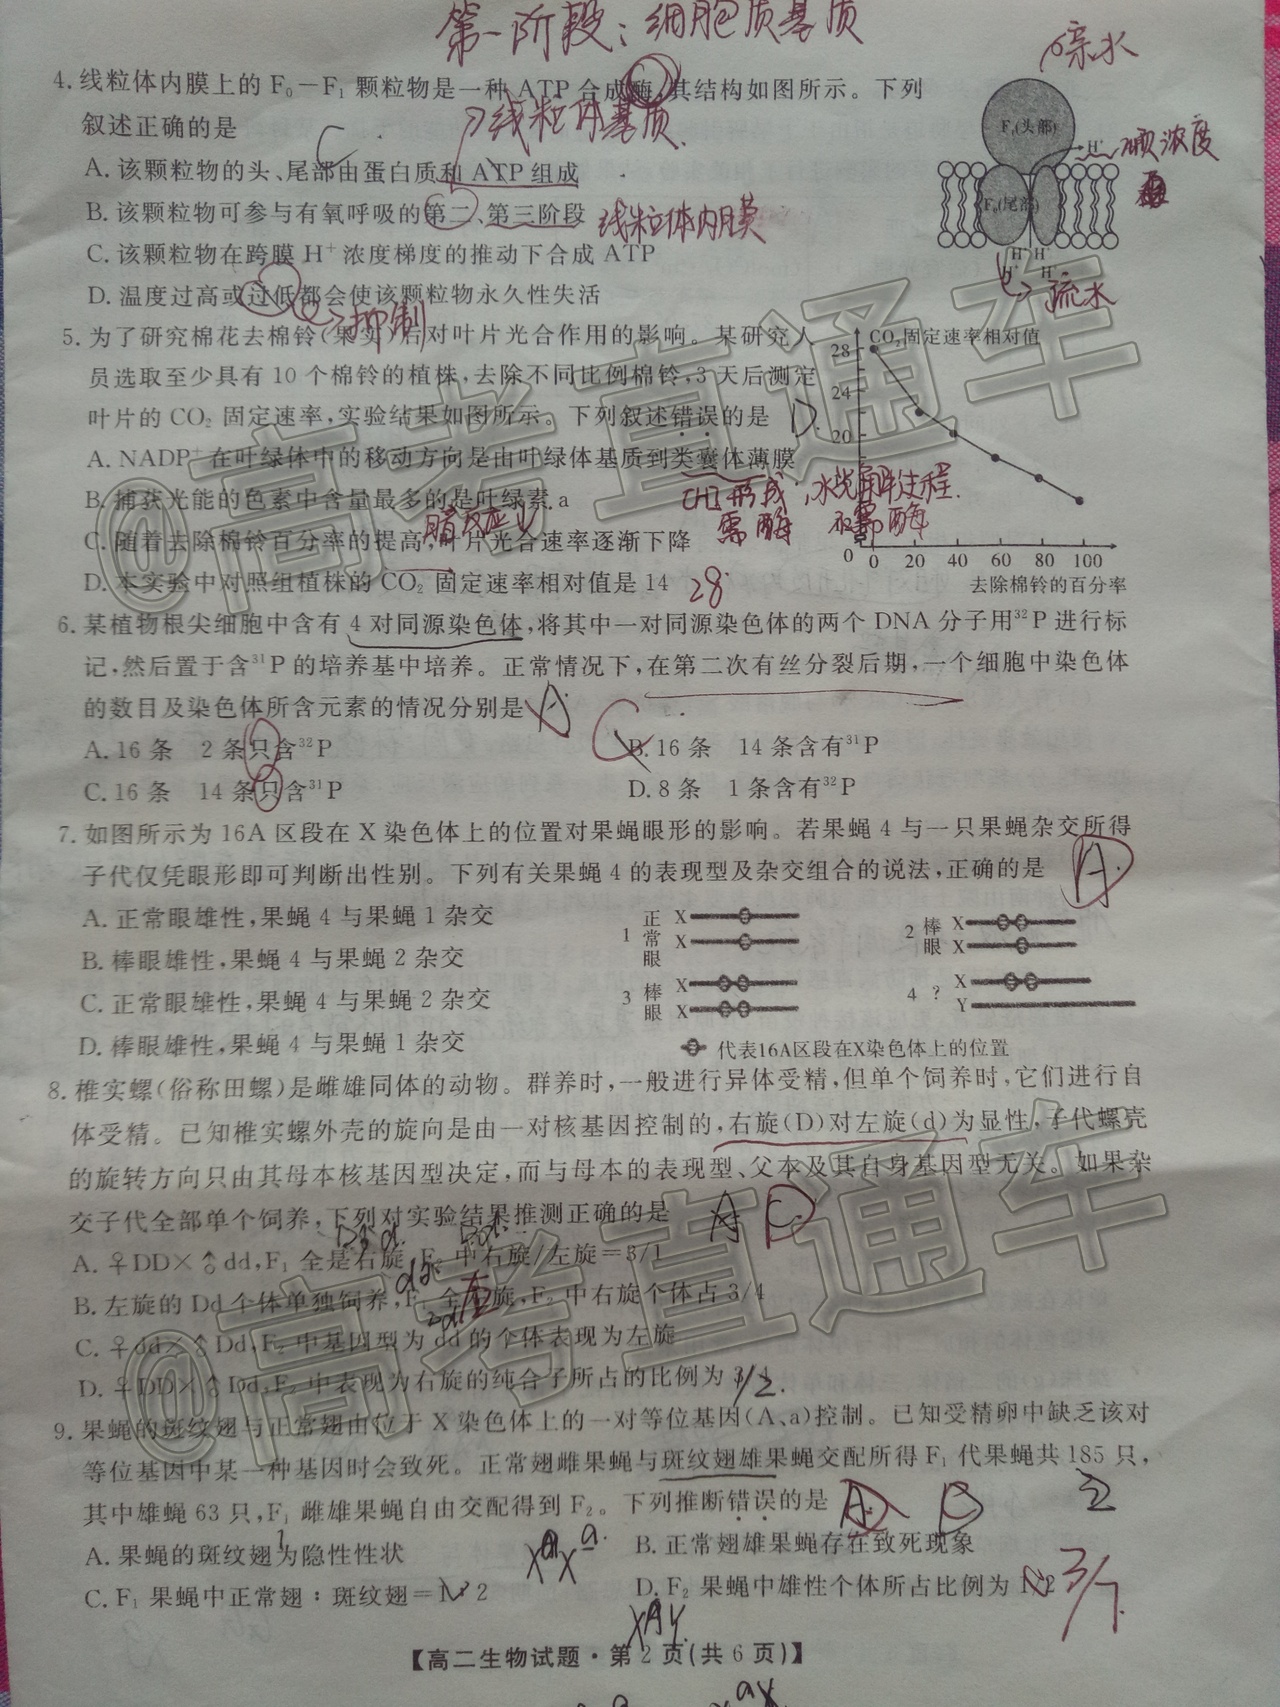 第一阶段:细胞质基质
4.线粒体内膜上的 F₀－F₁ 颗粒物是一种 ATP 合成酶,其结构如图所示。下列
叙述正确的是 C
线粒体基质
A.该颗粒物的头、尾部由蛋白质和 ATP 组成
B.该颗粒物可参与有氧呼吸的第二、第三阶段 线粒体内膜
C.该颗粒物在跨膜 H⁺ 浓度梯度的推动下合成 ATP
D.温度过高或过低都会使该颗粒物永久性失活
抑制
亲水
F₁(头部)
H⁺
顺浓度
F₀(尾部)
H⁺ H⁺
H⁺ H⁺
疏水
5.为了研究棉花去棉铃(果实)后对叶片光合作用的影响。某研究人
员选取至少具有 10 个棉铃的植株,去除不同比例棉铃,3 天后测定
叶片的 CO₂ 固定速率,实验结果如图所示。下列叙述错误的是 D.
A.NADP⁺在叶绿体中的移动方向是由叶绿体基质到类囊体薄膜
B.捕获光能的色素中含量最多的是叶绿素 a
C.随着去除棉铃百分率的提高,叶片光合速率逐渐下降
D.本实验中对照组植株的 CO₂ 固定速率相对值是 14 28
CO₂固定速率相对值
28
24
20
0
0 20 40 60 80 100
去除棉铃的百分率
[H]形成
需酶
水光解过程
不需酶
6.某植物根尖细胞中含有 4 对同源染色体,将其中一对同源染色体的两个 DNA 分子用³²P 进行标
记,然后置于含³¹P 的培养基中培养。正常情况下,在第二次有丝分裂后期,一个细胞中染色体
的数目及染色体所含元素的情况分别是 A C
A.16 条 2 条只含³²P B.16 条 14 条含有³¹P
C.16 条 14 条只含³¹P D.8 条 1 条含有³²P
7.如图所示为 16A 区段在 X 染色体上的位置对果蝇眼形的影响。若果蝇 4 与一只果蝇杂交所得
子代仅凭眼形即可判断出性别。下列有关果蝇 4 的表现型及杂交组合的说法,正确的是 A
A.正常眼雄性,果蝇 4 与果蝇 1 杂交
B.棒眼雄性,果蝇 4 与果蝇 2 杂交
C.正常眼雄性,果蝇 4 与果蝇 2 杂交
D.棒眼雄性,果蝇 4 与果蝇 1 杂交
1 正常眼 X X
2 棒眼 X X
3 棒眼 X X
4 ? X Y
代表16A区段在X染色体上的位置
8.椎实螺(俗称田螺)是雌雄同体的动物。群养时,一般进行异体受精,但单个饲养时,它们进行自
体受精。已知椎实螺外壳的旋向是由一对核基因控制的,右旋(D)对左旋(d)为显性,子代螺壳
的旋转方向只由其母本核基因型决定,而与母本的表现型、父本及其自身基因型无关。如果杂
交子代全部单个饲养,下列对实验结果推测正确的是 A D
A.♀DD×♂dd,F₁ 全是右旋,F₂ 中右旋/左旋=3/1
B.左旋的 Dd 个体单独饲养,F₁ 全右旋,F₂ 中右旋个体占 3/4
C.♀dd×♂Dd,F₂ 中基因型为 dd 的个体表现为左旋
D.♀DD×♂Dd,F₂ 中表现为右旋的纯合子所占的比例为 3/4
9.果蝇的斑纹翅与正常翅由位于 X 染色体上的一对等位基因(A、a)控制。已知受精卵中缺乏该对
等位基因中某一种基因时会致死。正常翅雌果蝇与斑纹翅雄果蝇交配所得 F₁ 代果蝇共 185 只,
其中雄蝇 63 只,F₁ 雌雄果蝇自由交配得到 F₂。下列推断错误的是 A D 2
A.果蝇的斑纹翅为隐性性状 B.正常翅雄果蝇存在致死现象
C.F₁ 果蝇中正常翅:斑纹翅=1∶2 D.F₂ 果蝇中雄性个体所占比例为 1/2 3/7
【高二生物试题·第 2 页(共 6 页)】
@高考直通车
@高考直通车